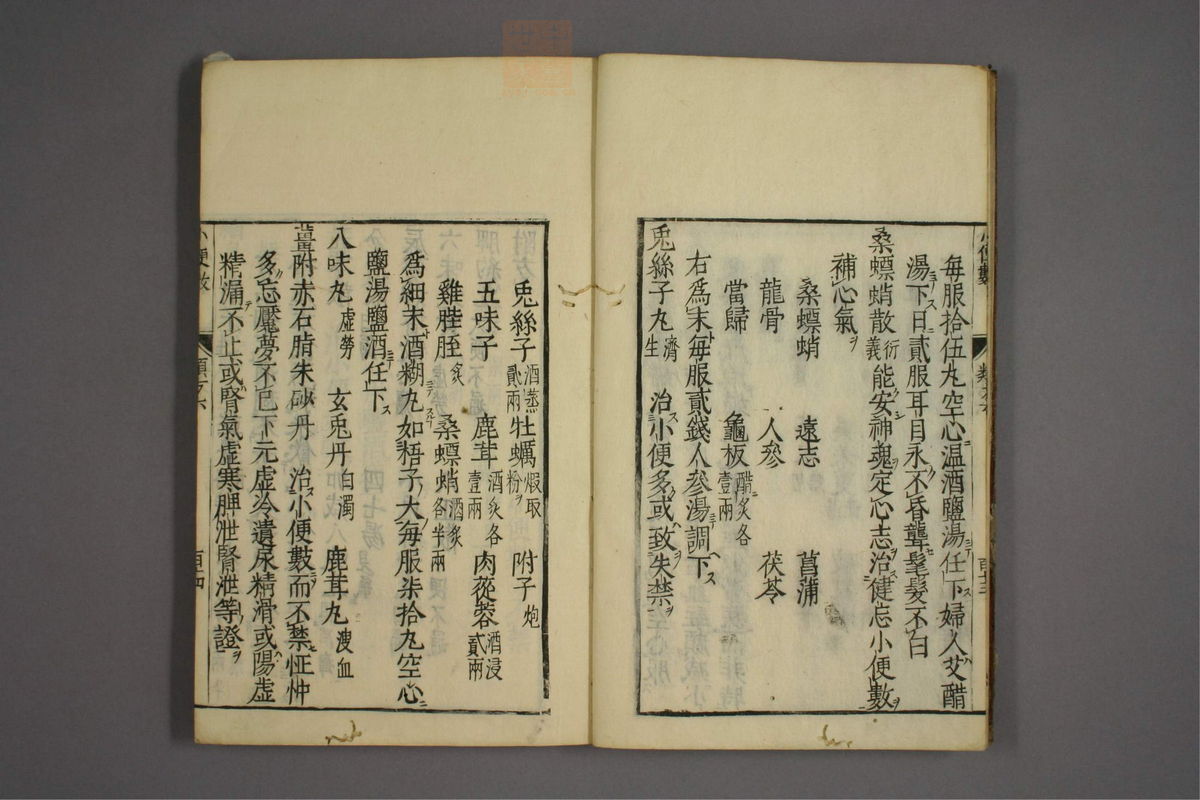 每服拾伍丸空心温酒鹽湯任下婦人艾醋
湯下日貳服耳目永不昏聾髦髮不白
桑螵蛸散 衍義 能安神魂定心志治健忘小便數
補心氣
桑螵蛸 遠志 菖蒲
龍骨 人參 茯苓
當歸 龜板 醋炙各壹兩
右爲末每服貳錢人參湯調下
兎絲子丸 濟生 治小便多或致失禁
兎絲子 酒蒸貳兩 牡蠣 煆取粉 附子 炮
五味子 鹿茸 酒炙各壹兩 肉蓯蓉 酒浸貳兩
雞膍胵 炙 桑螵蛸 酒炙各半兩
爲細末酒糊丸如梧子大每服柒拾丸空心
鹽湯鹽酒任下
八味丸 虛勞 玄兎丹 白濁 鹿茸丸 溲血
薑附赤石脂朱砂丹 治小便數而不禁怔忡
多忘魘夢不已下元虛冷遺尿精滑或陽虛
精漏不止或腎氣虛寒脾泄腎泄等證
小便數